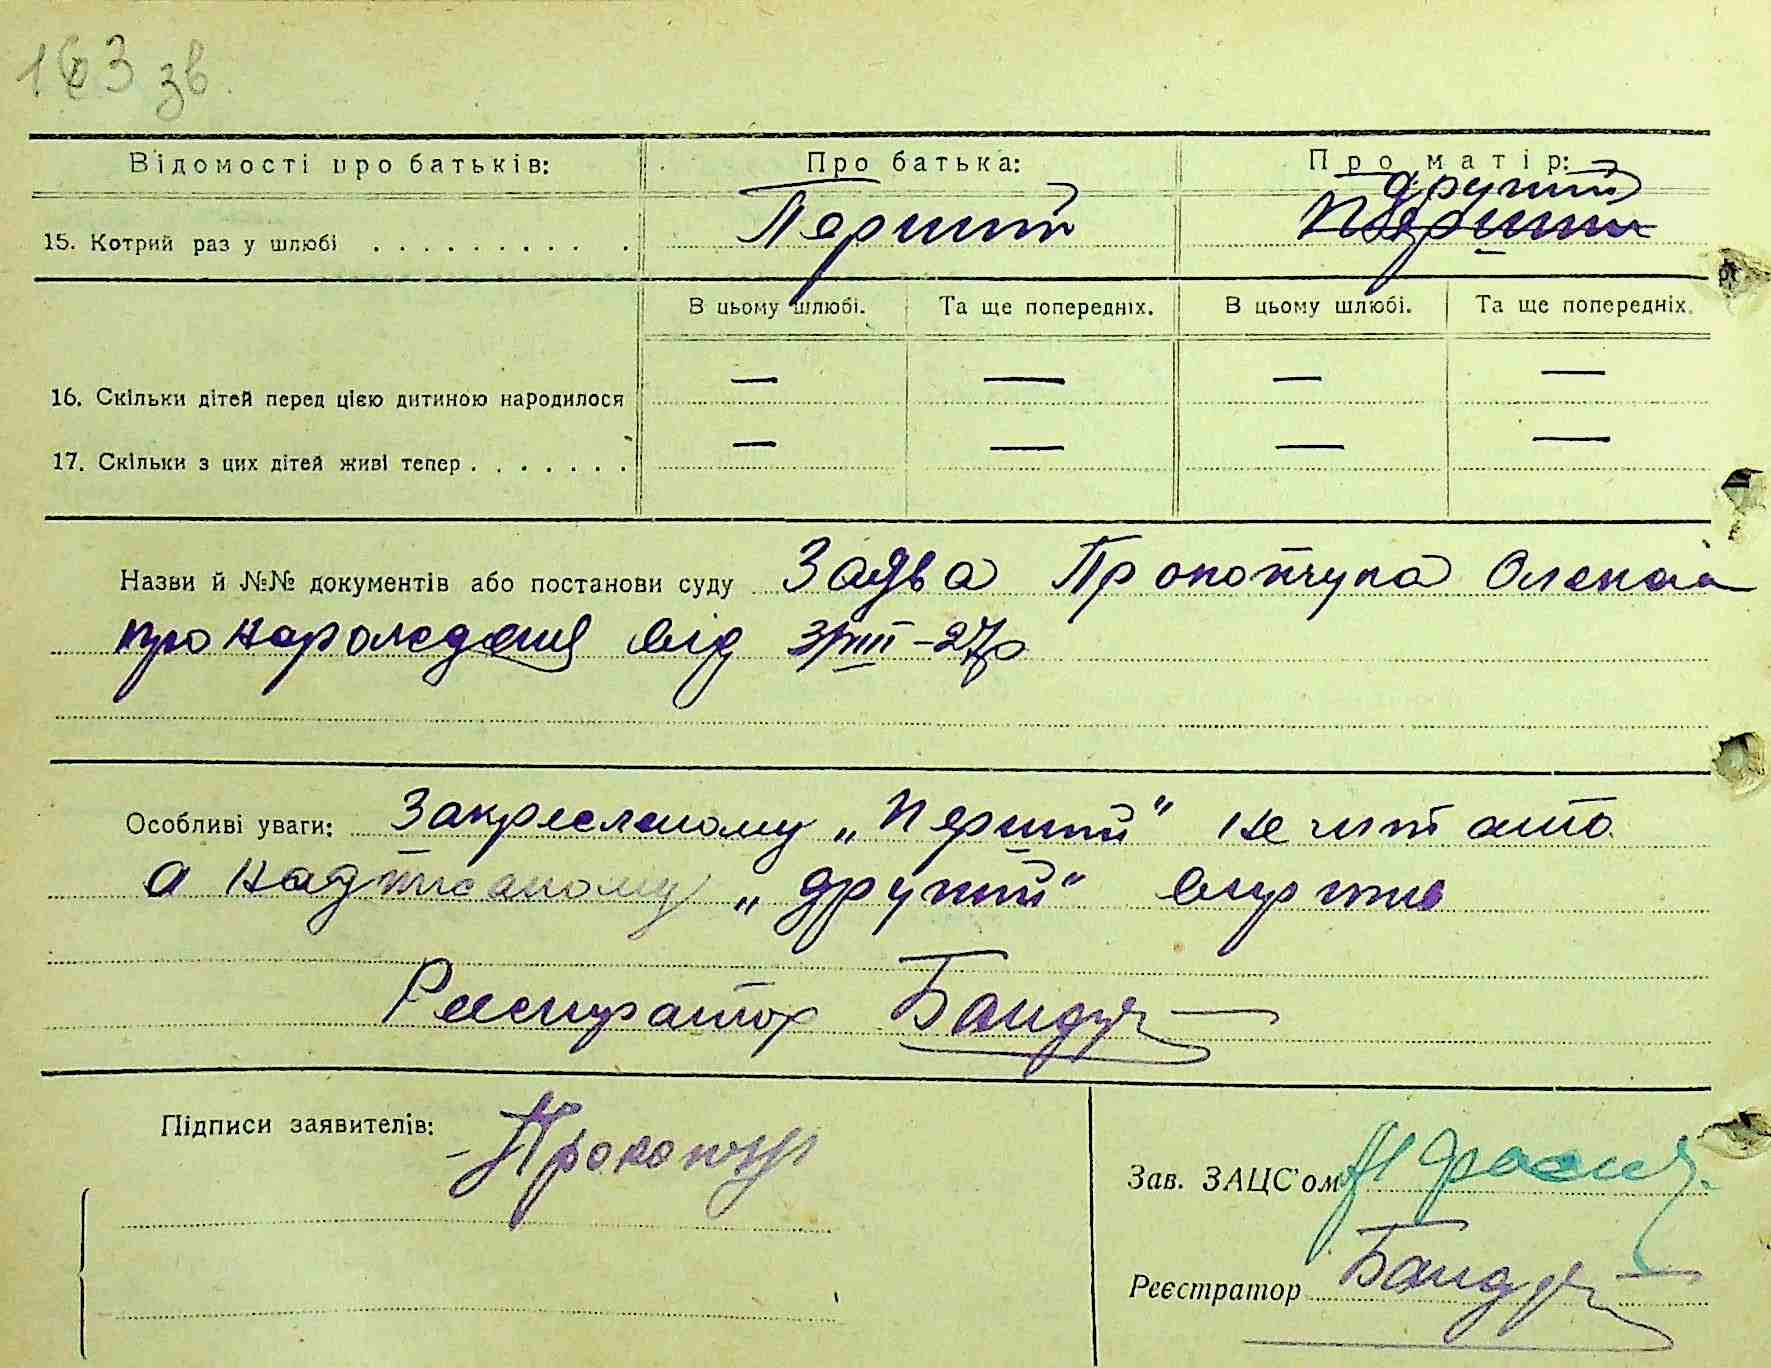 163 зв.
Відомості про батьків: Про батька: Про матір:
другий
15. Котрий раз у шлюбі . . . . . . . . . . Перший Перший
В цьому шлюбі. Та ще попередніх. В цьому шлюбі. Та ще попередніх.
16. Скільки дітей перед цією дитиною народилося — — — —
17. Скільки з цих дітей живі тепер . . . . . . . — — — —
Назви й №№ документів або постанови суду Заява Прокопчука Олекси
про народження від 3/VIII-27р
Особливі уваги: Закресленому „Перший" не читати
а надписаному „другий" вірити
Реєстратор Бандур
Підписи заявителів: Прокопчук
Зав. ЗАЦС'ом
Реєстратор Бандур